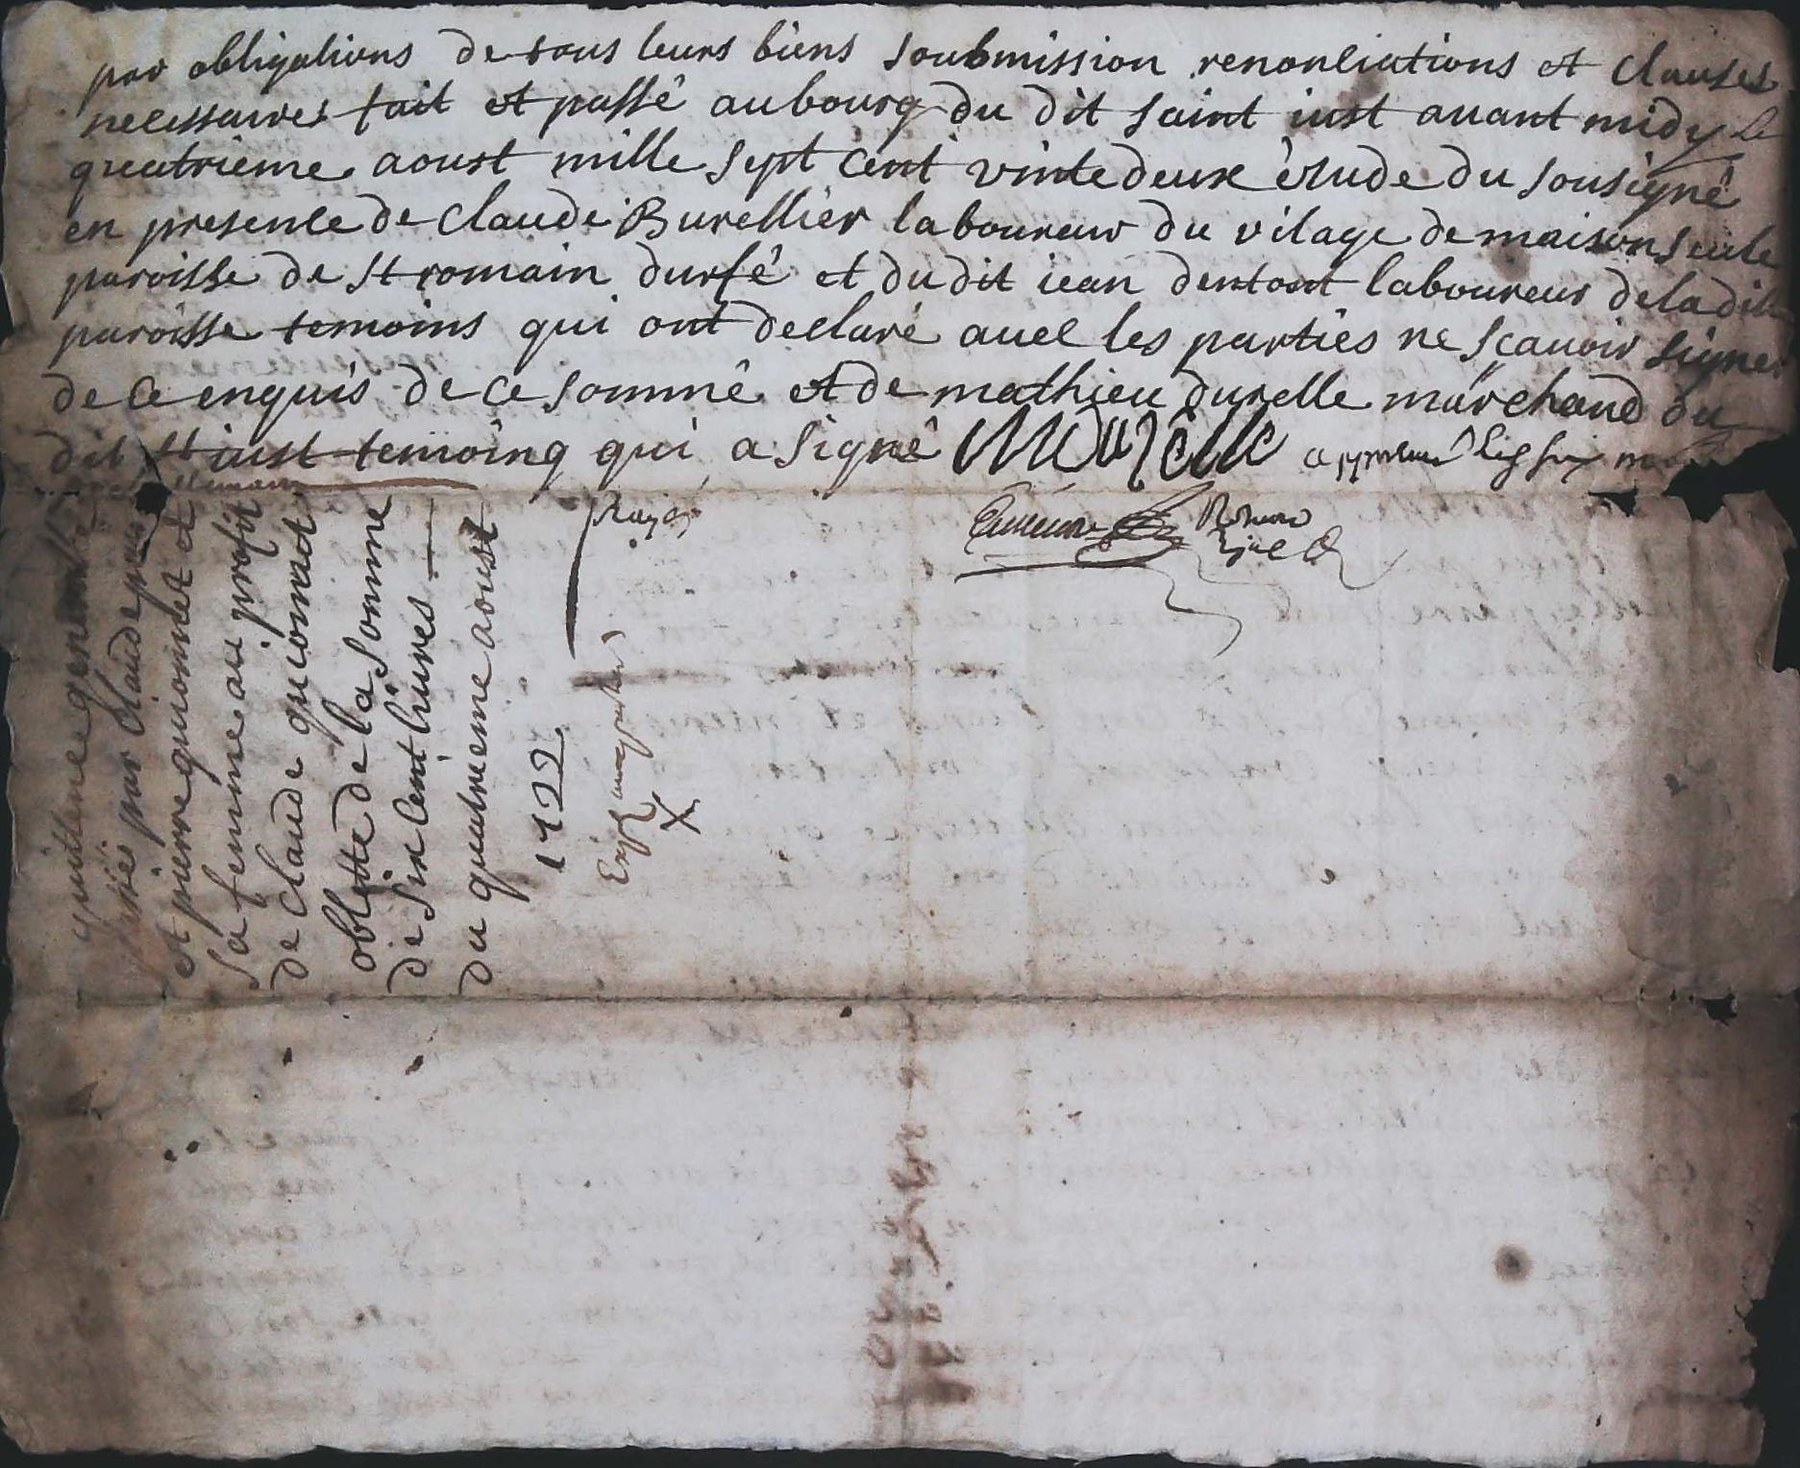 par obligations de tous leurs biens soubmission renonciations et clauses
necessaires fait et passé au bourg du dit saint iust auant midy le
quatrieme aoust mille sept cent vinte deux étude du sousigné
en presence de Claude Burellier laboureur du vilage de maison seule
paroisse de st romain durfé et du dit iean dentant laboureur de la dite
paroisse temoins qui ont declaré auec les parties ne scauoir signer
de ce enquis de ce sommé et de mathieu durelle marchand du
dit st iust temoing qui a signé
quittence generalle
par Claude
et pierre quionnet et
sa femme au profit
de Claude quionnet
oblotte de la somme
de six cent liures
du quatrieme aoust
1722
X